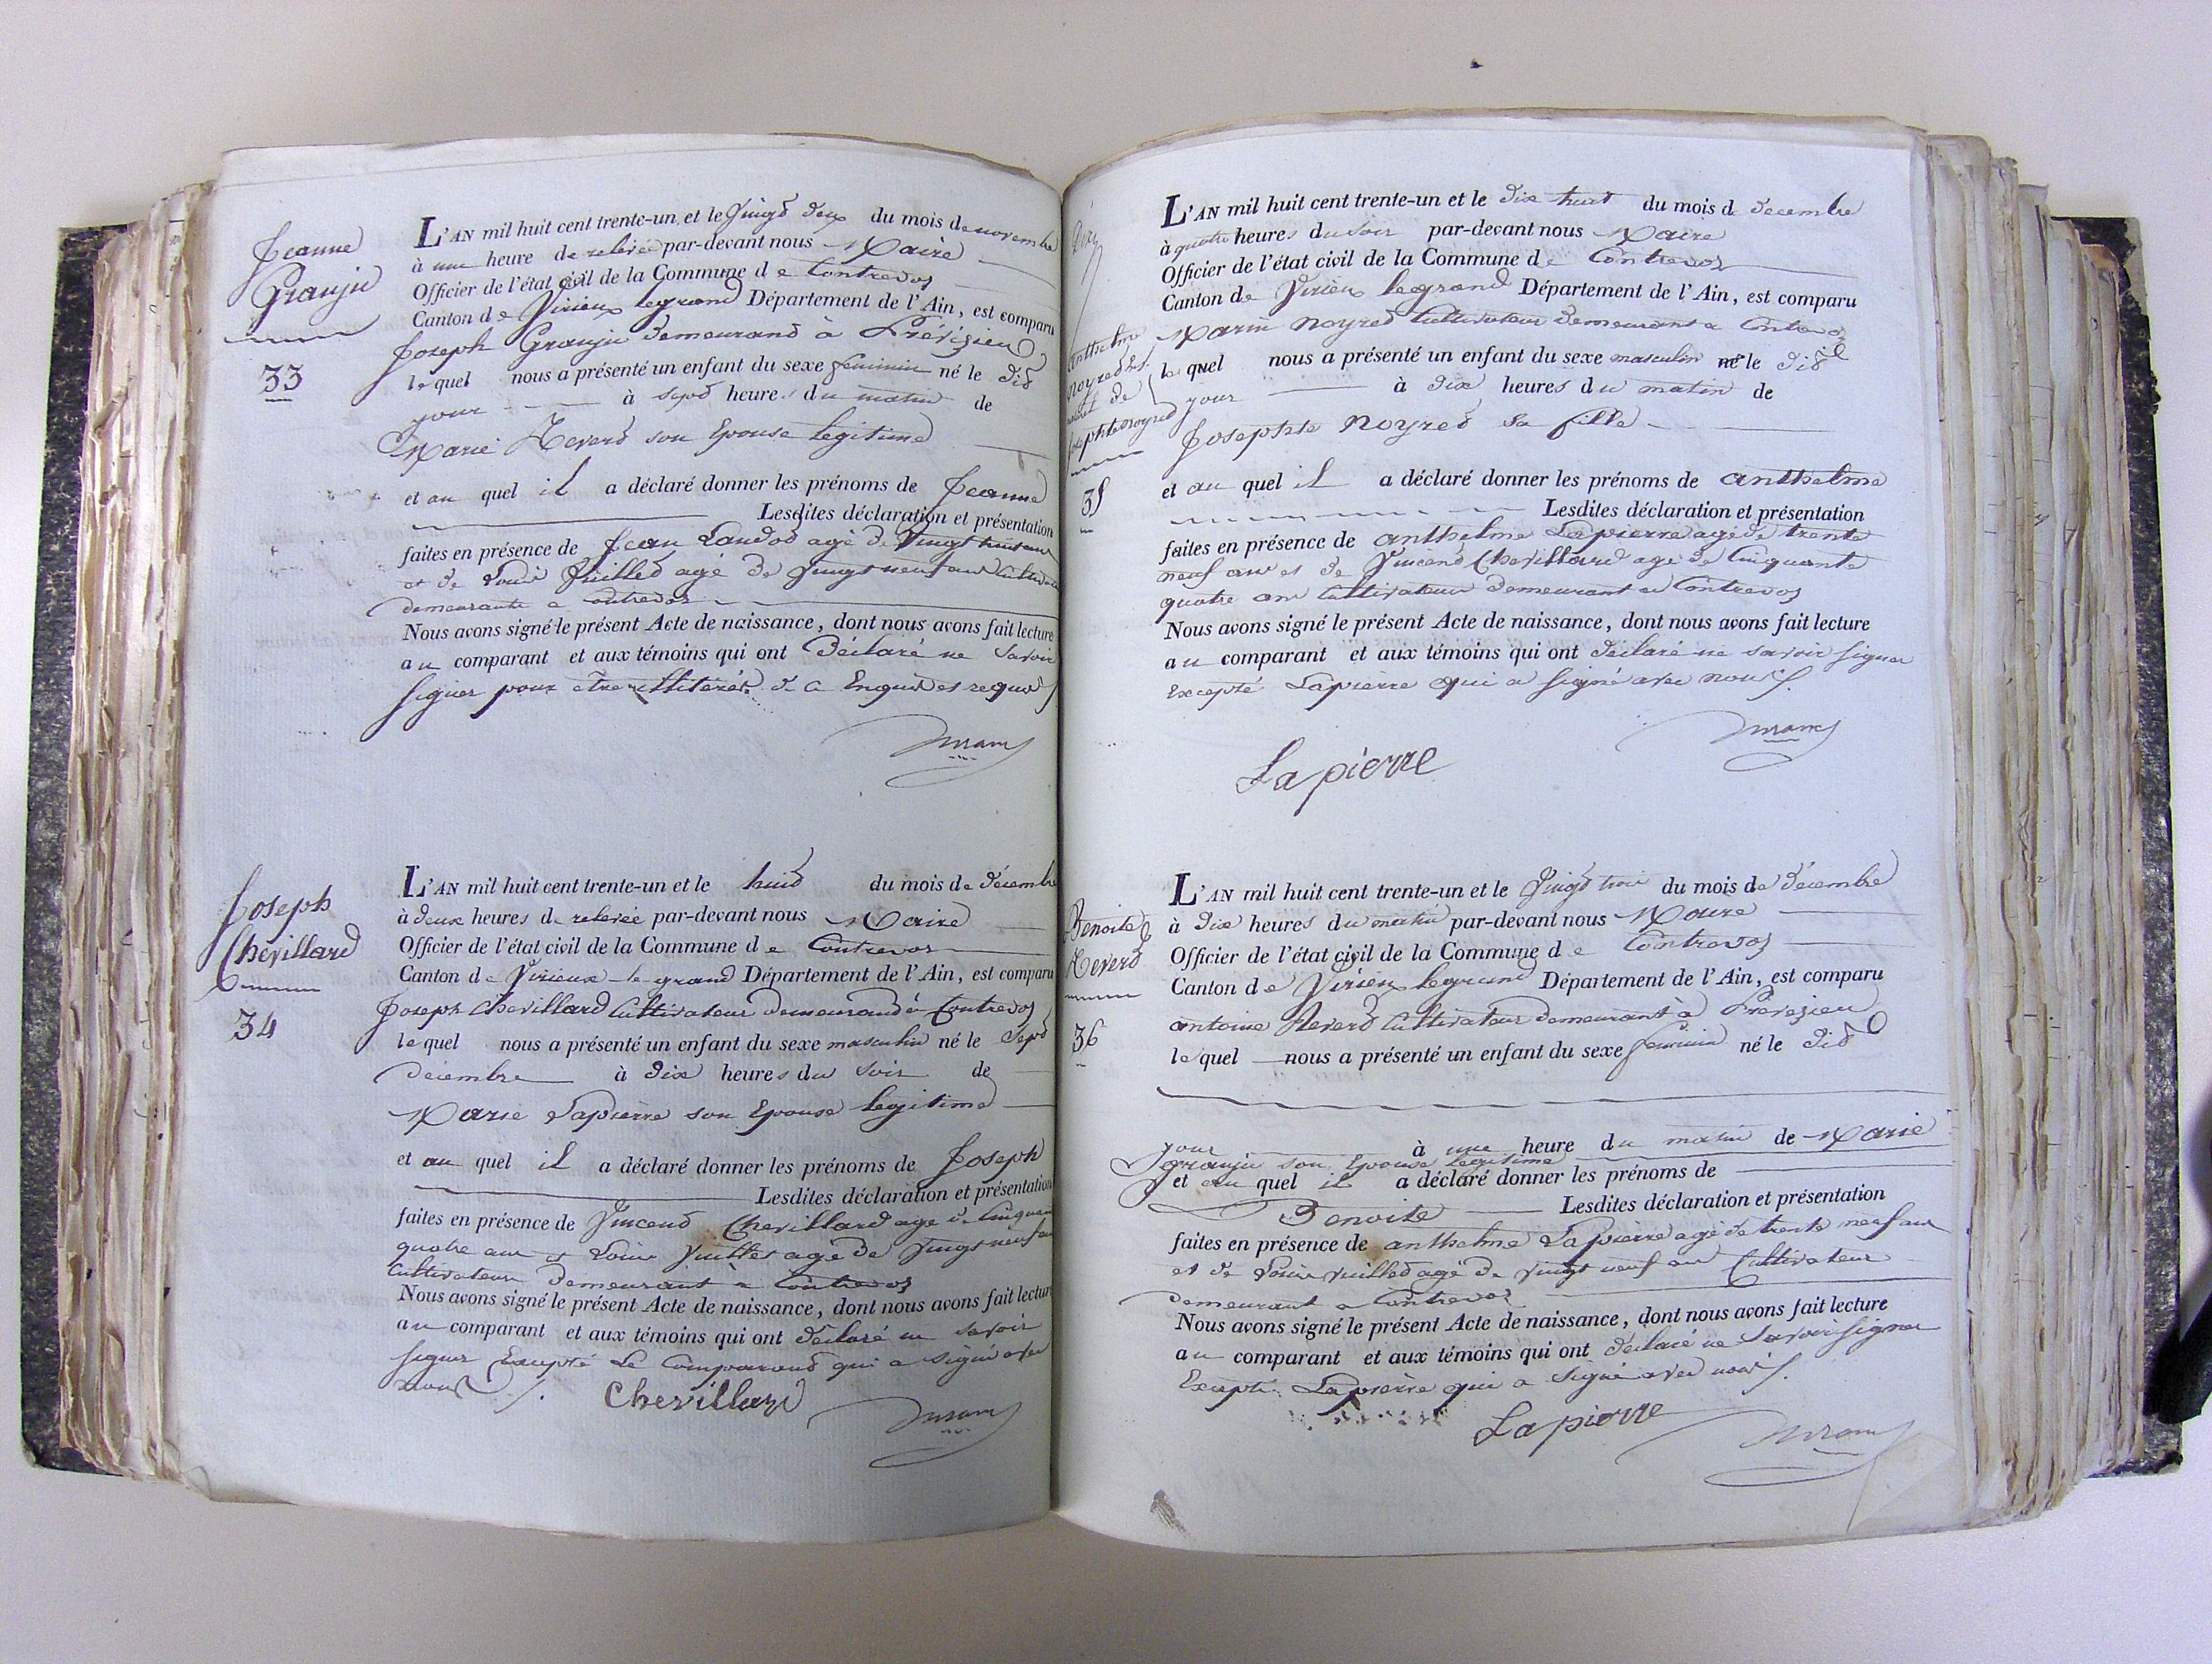 Jeanne
Granju
33
L'AN mil huit cent trente-un et le Vingt deux du mois de novembre
à une heure de relevée par-devant nous Maire
Officier de l'état civil de la Commune de Contrevoz
Canton de Virieux legrand Département de l'Ain, est comparu
Joseph Granju demeurand à Prévézieu
lequel nous a présenté un enfant du sexe feminin né le dit
jour à sept heures du matin de
Marie Reverd son Epouse legitime
et au quel il a déclaré donner les prénoms de Jeanne
Lesdites déclaration et présentation
faites en présence de Jean Landod agé de Vingt huit ans
et de Louis Juilled agé de vingt neuf ans
demeurants a Contrevoz
Nous avons signé le présent Acte de naissance, dont nous avons fait lecture
au comparant et aux témoins qui ont Déclaré ne Savoir
Signer pour être illiterés de ce Enquis et requis
Joseph
Chevillard
34
L'AN mil huit cent trente-un et le huid du mois de décembre
à deux heures de relevée par-devant nous Maire
Officier de l'état civil de la Commune de Contrevoz
Canton de Virieux le grand Département de l'Ain, est comparu
Joseph Chevillard Cultivateur demeurand à Contrevoz
lequel nous a présenté un enfant du sexe masculin né le Sept
decembre à dix heures du Soir de
Marie Lapierre son Epouse legitime
et au quel il a déclaré donner les prénoms de Joseph
Lesdites déclaration et présentation
faites en présence de Vincend Chevillard age de Cinquante
quatre ans et Louis Juilled agé de Vingt neuf ans
Cultivateurs demeurant à Contrevoz
Nous avons signé le présent Acte de naissance, dont nous avons fait lecture
au comparant et aux témoins qui ont déclaré ne savoir
signer Excepté Le Comparand qui a signé avec
nous
Chevillard
anthelme
noyred
de
josephte noyred
35
L'AN mil huit cent trente-un et le dix huit du mois de decembre
à quatre heures du soir par-devant nous Maire
Officier de l'état civil de la Commune de Contrevoz
Canton de Virieux legrand Département de l'Ain, est comparu
Marin Noyred Cultivateur demeurant a Contrevoz
lequel nous a présenté un enfant du sexe masculin né le dit
jour à dix heures du matin de
Josephte Noyred sa fille
et au quel il a déclaré donner les prénoms de anthelme
Lesdites déclaration et présentation
faites en présence de anthelme Lapierre agé de trente
neuf ans et de Vincend Chevillard agé de Cinquante
quatre ans Cultivateurs demeurant a Contrevoz
Nous avons signé le présent Acte de naissance, dont nous avons fait lecture
au comparant et aux témoins qui ont déclaré ne savoir signer
Excepté Lapierre qui a signé avec nous
Lapierre
Benoite
Reverd
36
L'AN mil huit cent trente-un et le Vingt trois du mois de décembre
à dix heures du matin par-devant nous Maire
Officier de l'état civil de la Commune de Contrevoz
Canton de Virieux legrand Département de l'Ain, est comparu
antoine Reverd Cultivateur demeurant à Prevezieu
lequel nous a présenté un enfant du sexe feminin né le dit
jour à une heure du matin de Marie
granju son Epouse legitime
et au quel il a déclaré donner les prénoms de
Benoite Lesdites déclaration et présentation
faites en présence de anthelme Lapierre agé de trente neuf ans
et de Louis Juilled agé de vingt neuf ans Cultivateurs
demeurant a Contrevoz
Nous avons signé le présent Acte de naissance, dont nous avons fait lecture
au comparant et aux témoins qui ont déclaré ne Savoir signer
Excepté Lapierre qui a Signé avec nous
Lapierre